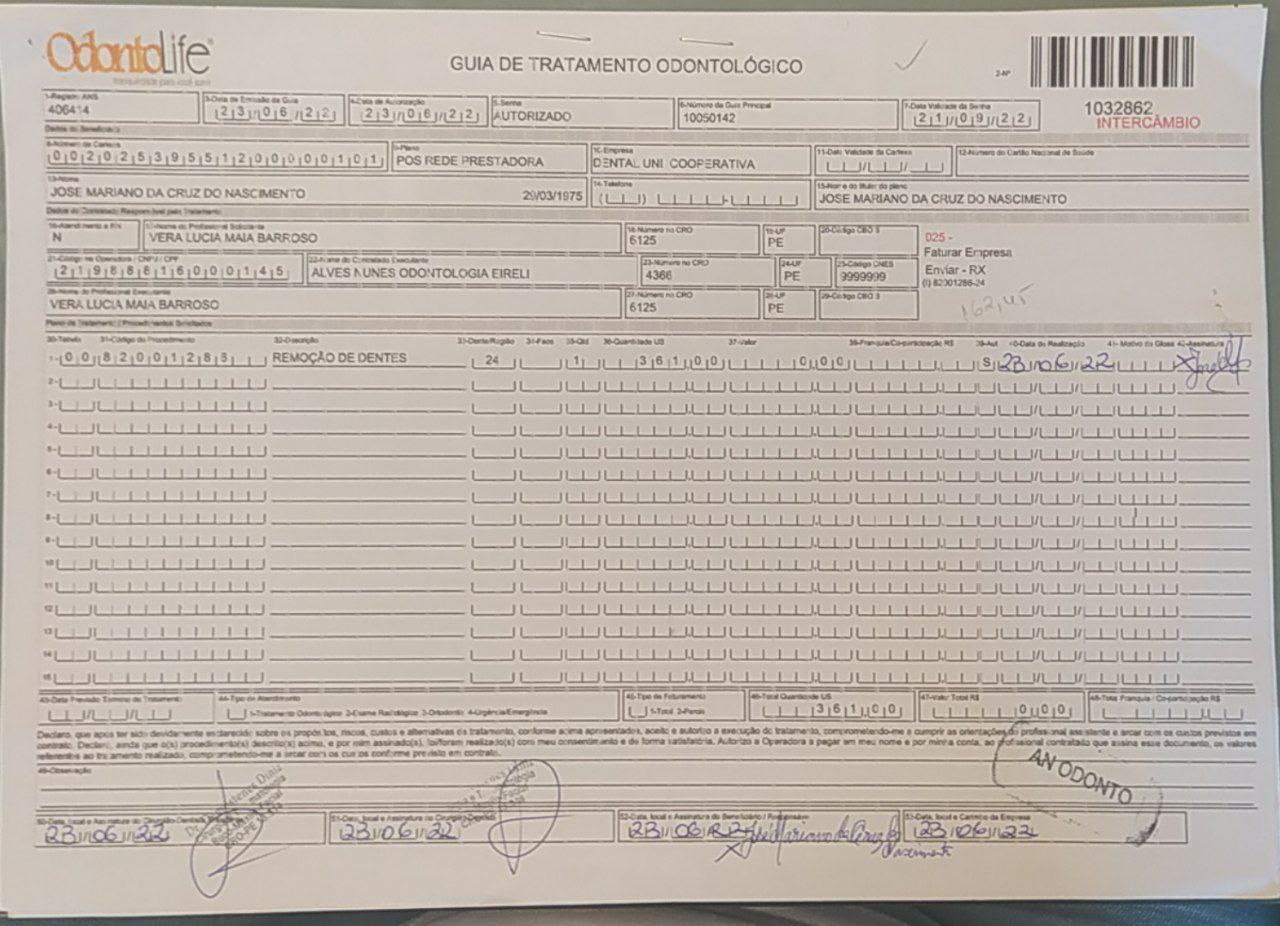 OdontoLife
tranquilidade para você sorrir
GUIA DE TRATAMENTO ODONTOLÓGICO
2-Nº
1032862
INTERCÂMBIO
1-Registro ANS
406414
3-Data de Emissão da Guia
23/06/22
4-Data de Autorização
23/06/22
5-Senha
AUTORIZADO
6-Número da Guia Principal
10050142
7-Data Validade da Senha
21/09/22
Dados do Beneficiário
8-Número da Carteira
00202539551200000101
9-Plano
POS REDE PRESTADORA
10-Empresa
DENTAL UNI COOPERATIVA
11-Data Validade da Carteira
12-Número do Cartão Nacional de Saúde
13-Nome
JOSE MARIANO DA CRUZ DO NASCIMENTO 29/03/1975
14-Telefone
15-Nome do titular do plano
JOSE MARIANO DA CRUZ DO NASCIMENTO
Dados do Contratado Responsável pelo Tratamento
16-Atendimento a RN
N
17-Nome do Profissional Solicitante
VERA LUCIA MAIA BARROSO
18-Número no CRO
6125
19-UF
PE
20-Código CBO S
025 -
Faturar Empresa
Enviar - RX
(I) 82001286-24
162,45
21-Código na Operadora / CNPJ / CPF
21988816000145
22-Nome do Contratado Executante
ALVES NUNES ODONTOLOGIA EIRELI
23-Número no CRO
4366
24-UF
PE
25-Código CNES
9999999
26-Nome do Profissional Executante
VERA LUCIA MAIA BARROSO
27-Número no CRO
6125
28-UF
PE
29-Código CBO S
Plano de Tratamento / Procedimentos Solicitados
30-Tabela 31-Código do Procedimento 32-Descrição 33-Dente/Região 34-Face 35-Qtd 36-Quantidade US 37-Valor 38-Franquia/Co-participação R$ 39-Aut 40-Data de Realização 41- Motivo da Glosa 42-Assinatura
1- 00 82001286 REMOÇÃO DE DENTES 24 1 361 00 0 00 S 23/06/22
2-
3-
4-
5-
6-
7-
8-
9-
10
11
12
13
14
15
43-Data Previsão Término do Tratamento
44-Tipo de Atendimento
1-Tratamento Odontológico 2-Exame Radiológico 3-Ortodontia 4-Urgência/Emergência
45-Tipo de Faturamento
1-Total 2-Parcial
46-Total Quantidade US
361 00
47-Valor Total R$
0 00
48-Total Franquia / Co-participação R$
Declaro, que após ter sido devidamente esclarecido sobre os propósitos, riscos, custos e alternativas de tratamento, conforme acima apresentados, aceito e autorizo a execução do tratamento, comprometendo-me a cumprir as orientações do profissional assistente e arcar com os custos previstos em
contrato. Declaro, ainda que o(s) procedimento(s) descrito(s) acima, e por mim assinado(s), foi/foram realizado(s) com meu consentimento e de forma satisfatória. Autorizo a Operadora a pagar em meu nome e por minha conta, ao profissional contratado que assina esse documento, os valores
referentes ao tratamento realizado, comprometendo-me a arcar com os custos conforme previsto em contrato.
49-Observação
AN ODONTO
50-Data, local e Assinatura do Cirurgião-Dentista
23/06/22
51-Data, local e Assinatura do Cirurgião-Dentista
23/06/22
52-Data, local e Assinatura do Beneficiário / Responsável
23/06/22 José Mariano da Cruz do
Nascimento
53-Data, local e Carimbo da Empresa
23/06/22